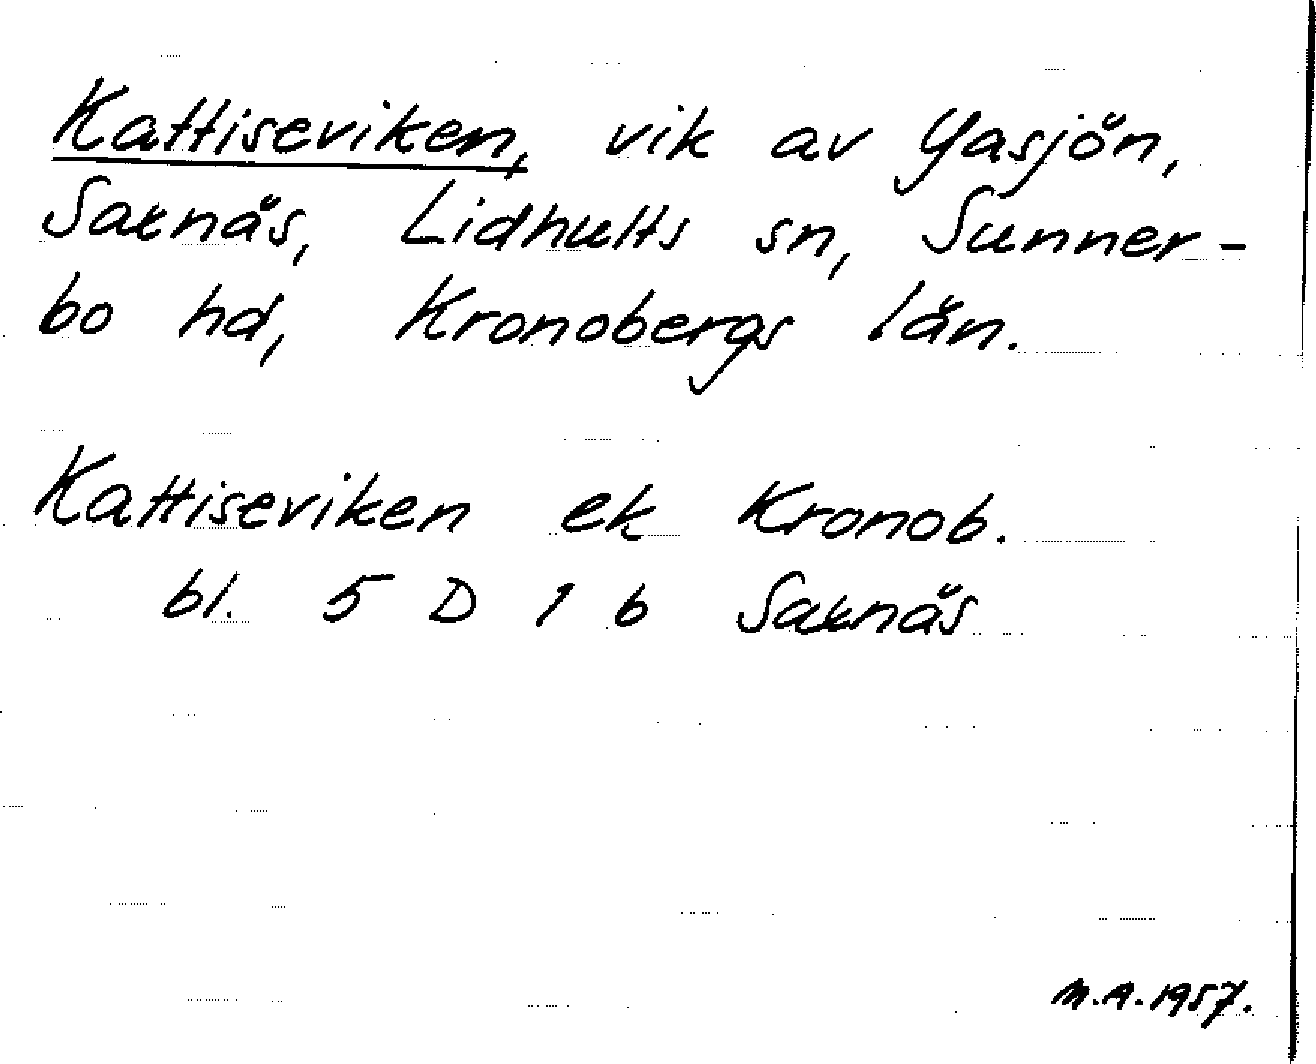 Kattiseviken, vik av Yasjön,
Saxnäs, Lidhults sn, Sunner-
bo hd, Kronobergs län.
Kattiseviken ek Kronob.
bl. 5 D 1 b Saxnäs
M.A. 1957.